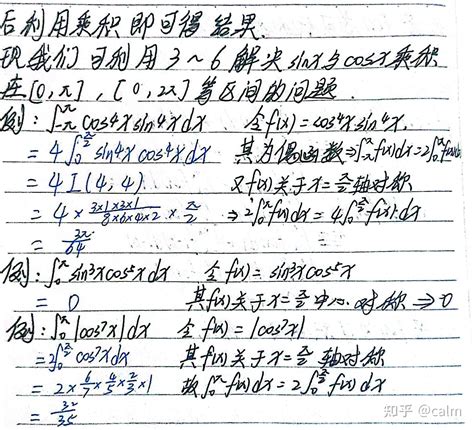 后利用乘积即可得结果.
现我们可利用3～6解决sinx与cosx乘积
在[0,π],[0,2π]等区间的问题.
例: ∫_{-π}^{π} cos⁴x sin⁴x dx 令f(x)=cos⁴x sin⁴x.
= 4∫_0^{π/2} sin⁴x cos⁴x dx 其为偶函数⇒∫_{-π}^{π}f(x)dx=2∫_0^{π}f(x)dx
= 4 I(4,4) 又f(x)关于x=π/2轴对称
= 4 × (3×1×3×1)/(8×6×4×2) × π/2 ⇒2∫_0^{π}f(x)dx=4∫_0^{π/2}f(x)dx
= 3π/64
例: ∫_0^{π} sin³x cos⁵x dx 令f(x)=sin³x cos⁵x
= 0 其f(x)关于x=π/2中心对称⇒0
例: ∫_0^{π} |cos⁷x| dx 令f(x)=|cos⁷x|
=2∫_0^{π/2} cos⁷x dx 其f(x)关于x=π/2轴对称
= 2×6/7×4/5×2/3×1 故∫_0^{π}f(x)dx=2∫_0^{π/2}f(x)dx
= 32/35
知乎 @calm